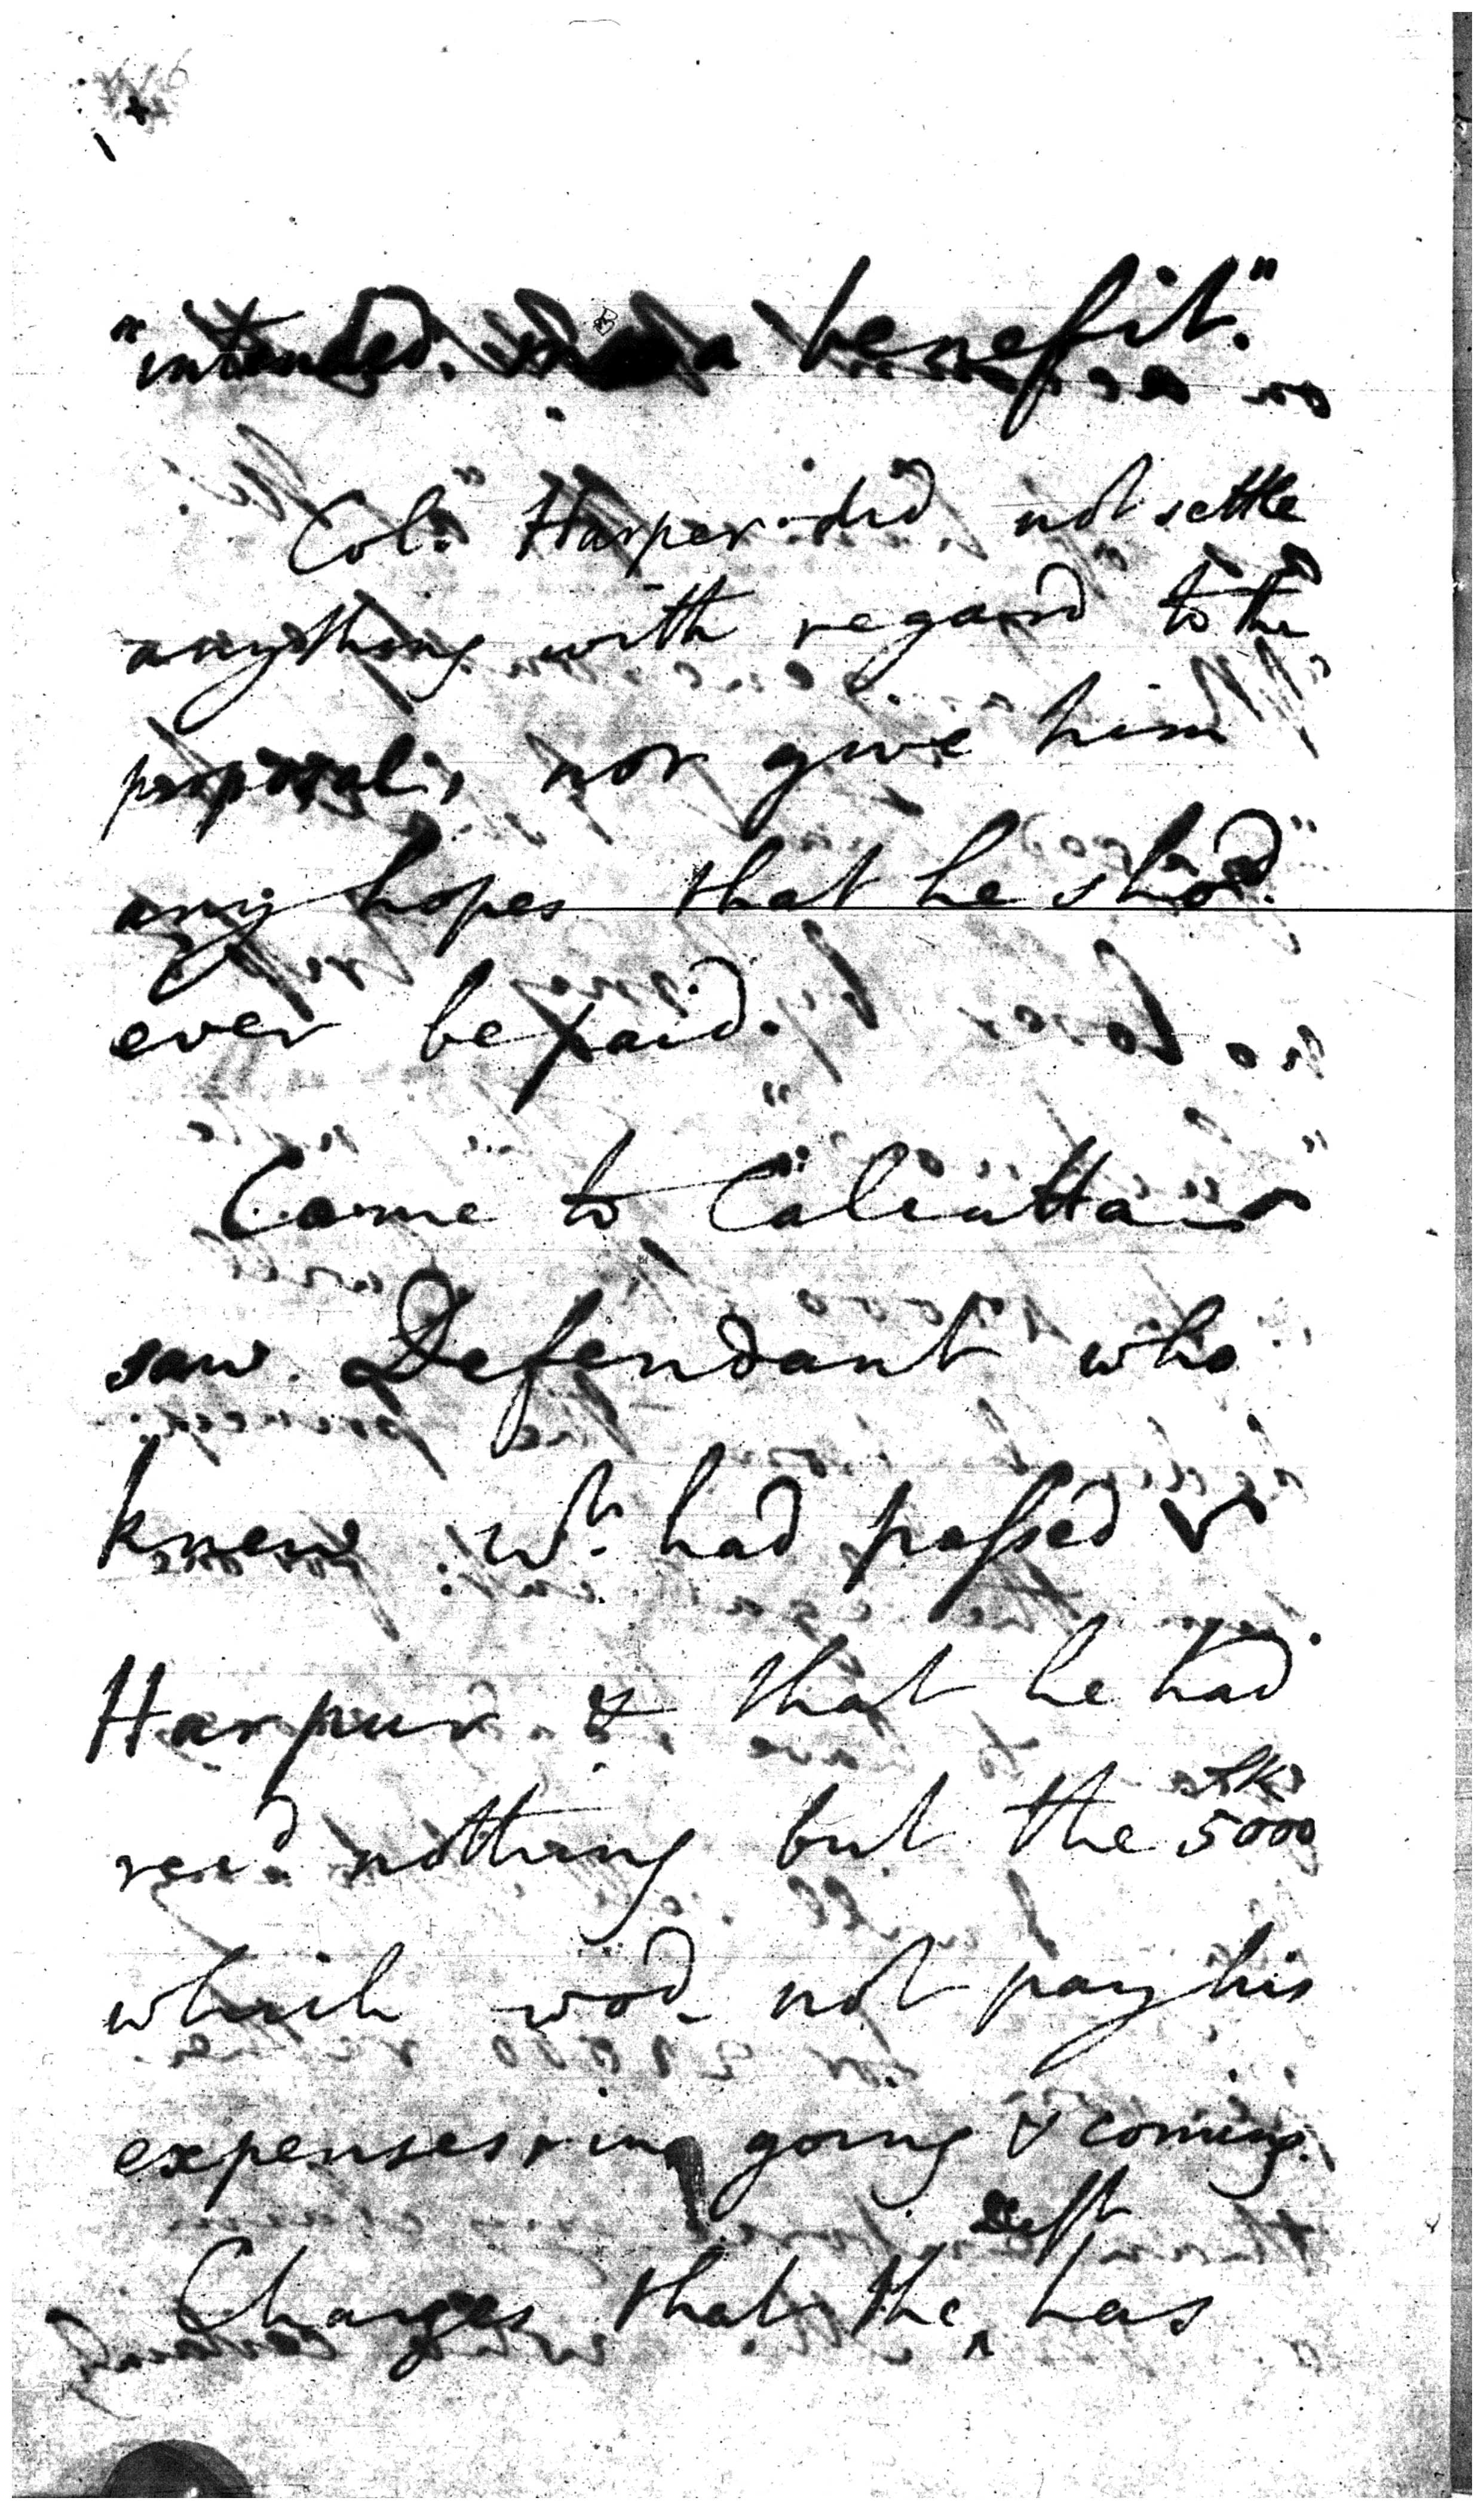 "intended a benefit."
Col. Harper did not settle
anything with regard to the
proposal, nor give him
any hopes that he shod.
ever be paid.
Came to Calcutta
saw Defendant who
knew wt. had passed
Harpur & that he had
recd. nothing but the 5000
which wod. not pay his
expenses in going & coming.
Charges that the Deft has